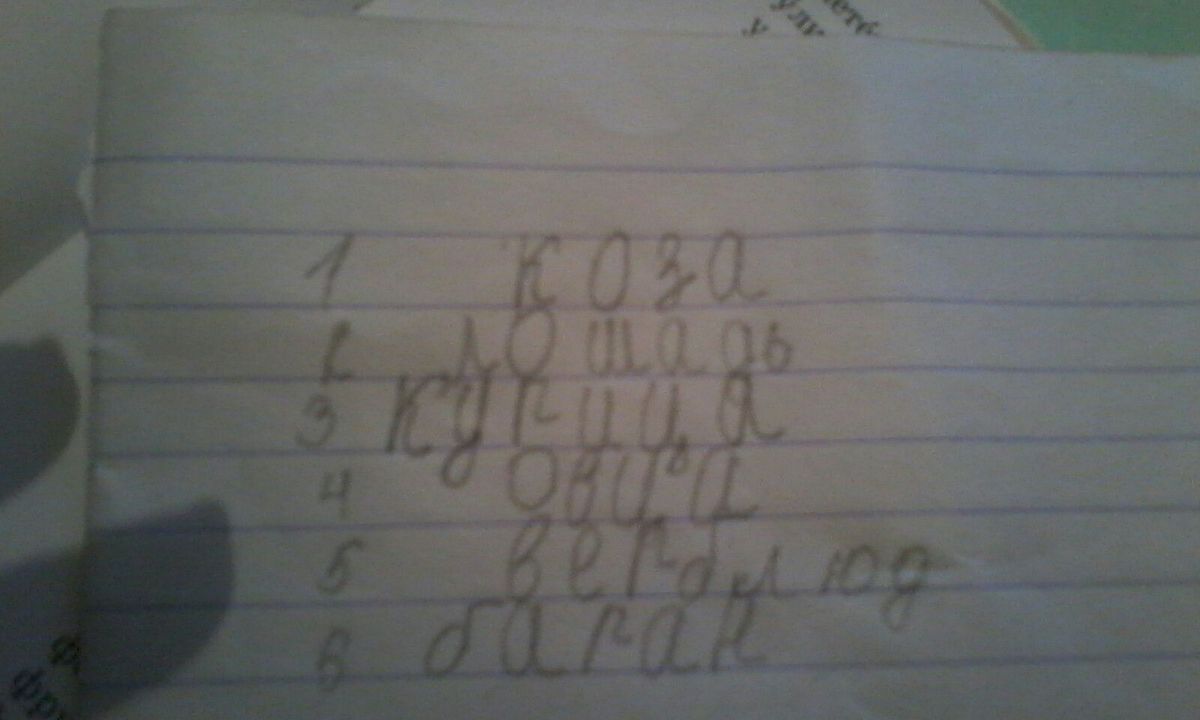 1 коза
2 лошадь
3 курица
4 овца
5 верблюд
6 баран